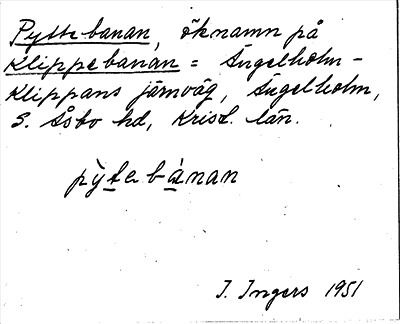 Pyttebanan, öknamn på
Klippebanan = Ängelholm-
Klippans järnväg, Ängelholm,
S. Åsbo hd, Krist. län.
pỳtebánan
I. Ingers 1951